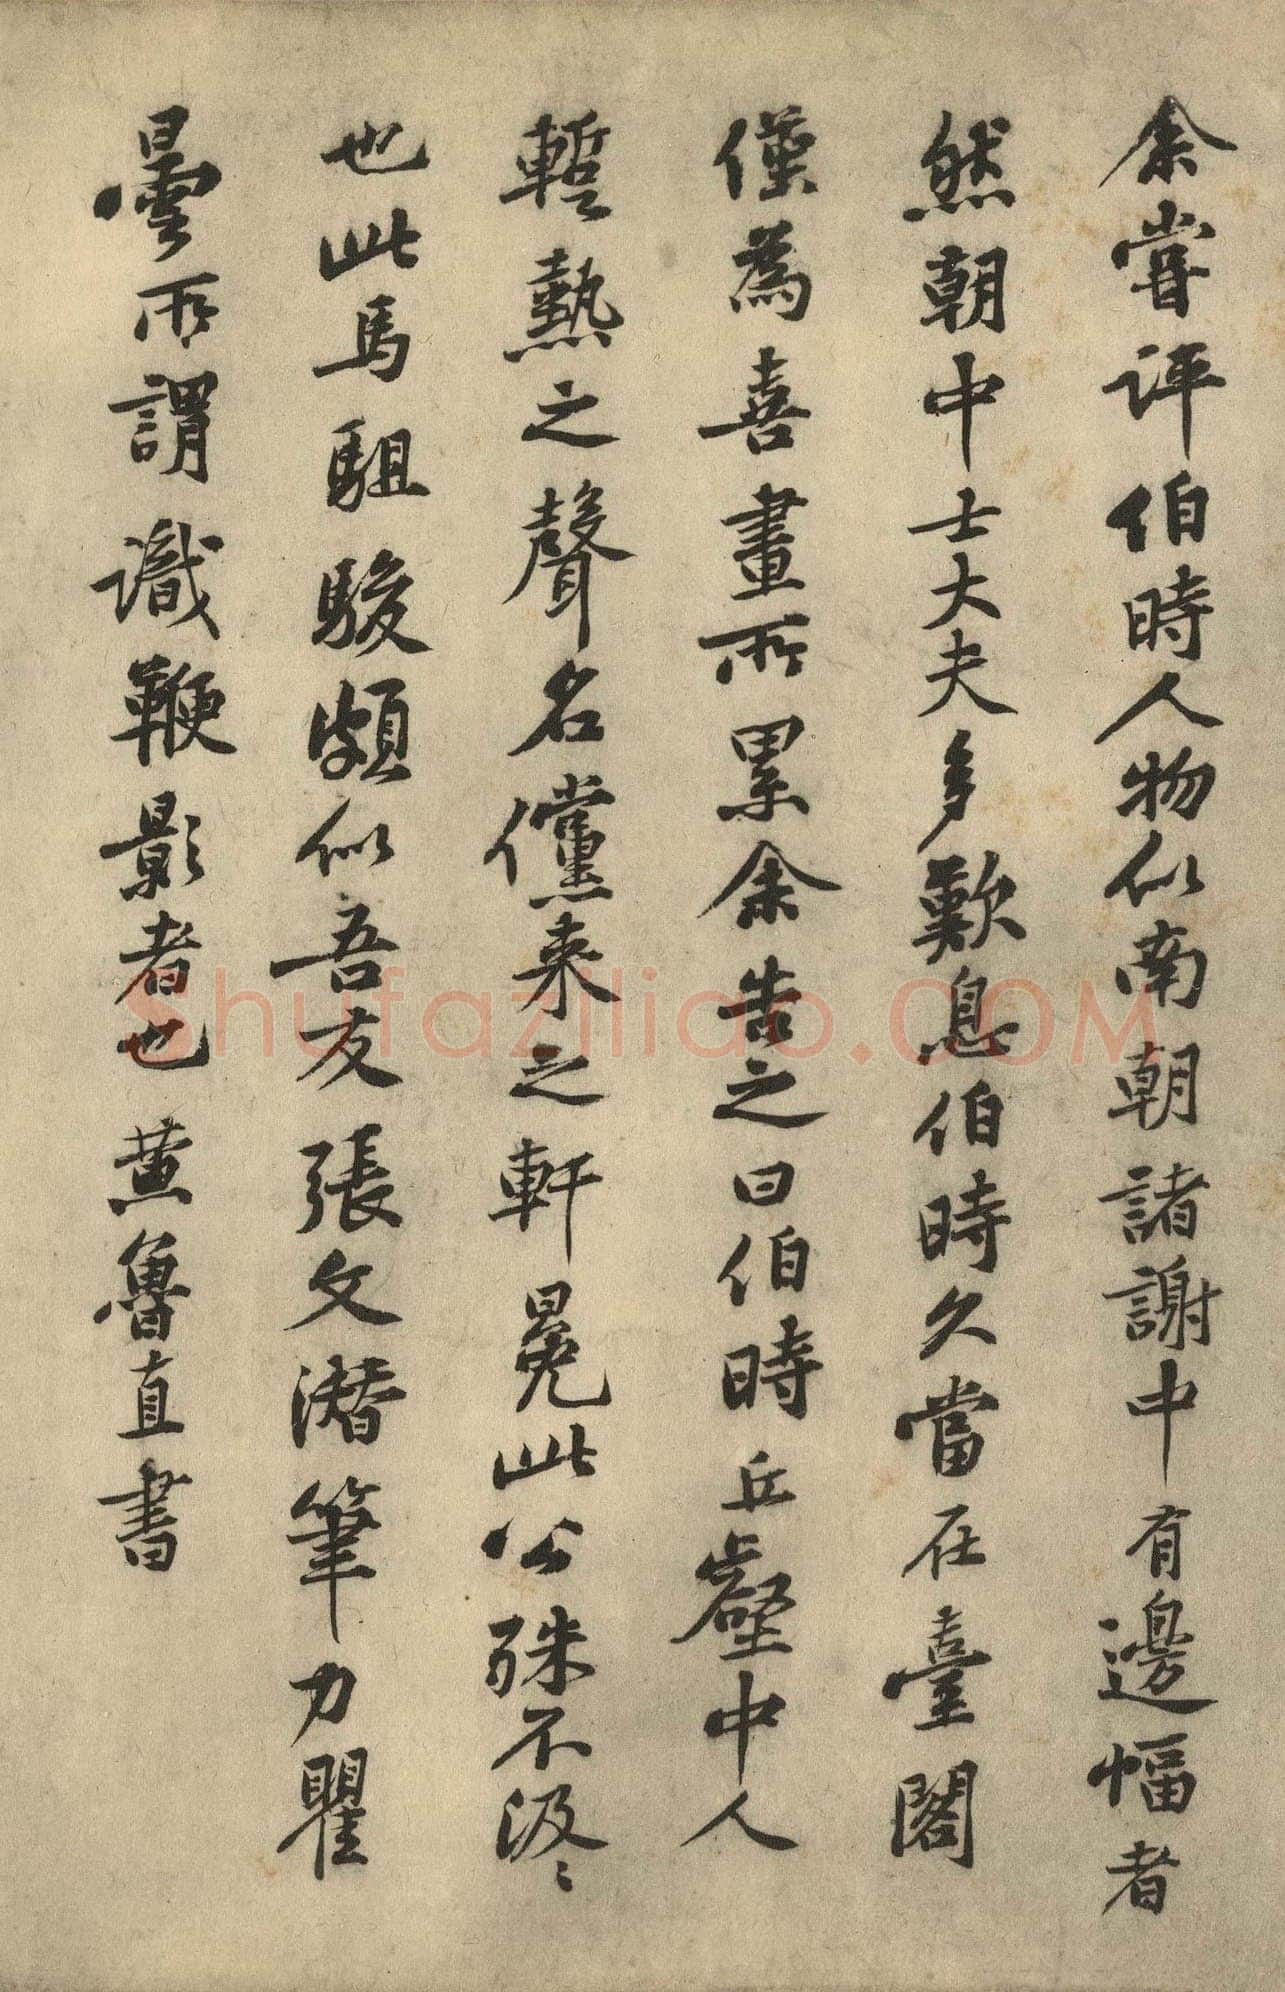 余嘗評伯時人物似南朝諸謝中有邊幅者
然朝中士大夫多歎息伯時久當在臺閣
僅為喜畫所累余告之曰伯時丘壑中人
蹔熱之聲名儻来之軒冕此公殊不汲〻
也此馬駔駿頗似吾友張文潛筆力瞿
曇所謂識鞭影者也黄魯直書
Shufaziliao.COM